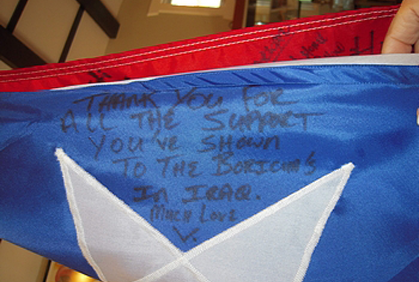 THANK YOU FOR
ALL THE SUPPORT
YOU'VE SHOWN
TO THE BORICUA'S
IN IRAQ.
MUCH LOVE
V.